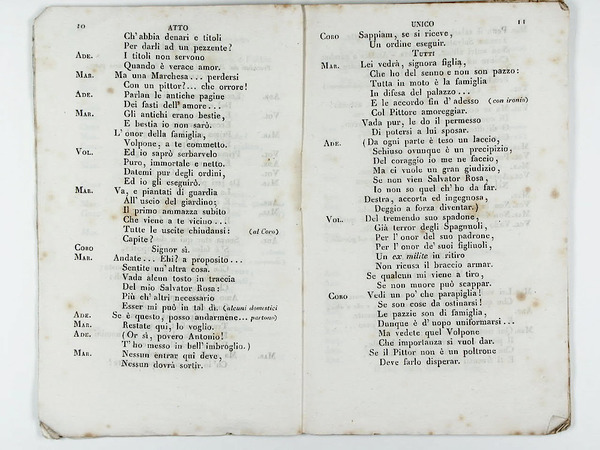 10 ATTO
Ch' abbia denari e titoli
Per darli ad un pezzente?
ADE. I titoli non servono
Quando è verace amor.
MAR. Ma una Marchesa... perdersi
Con un pittor?... che orrore!
ADE. Parlan le antiche pagine
Dei fasti dell' amore...
MAR. Gli antichi erano bestie,
E bestia io non sarò.
L' onor della famiglia,
Volpone, a te commetto.
VOL. Ed io saprò serbarvelo
Puro, immortale e netto.
Datemi pur degli ordini,
Ed io gli eseguirò.
MAR. Va, e piantati di guardia
All' uscio del giardino;
Il primo ammazza subito
Che viene a te vicino...
Tutte le uscite chiudansi: (al Coro)
Capite?
CORO Signor sì.
MAR. Andate... Ehi? a proposito...
Sentite un' altra cosa.
Vada alcun tosto in traccia
Del mio Salvator Rosa:
Più ch' altri necessario
Esser mi può in tal dì. (alcuni domestici
ADE. Se è questo, posso andarmene... partono)
MAR. Restate qui, lo voglio.
ADE. (Or sì, povero Antonio!
T' ho messo in bell' imbroglio.)
MAR. Nessun entrar quì deve,
Nessun dovrà sortir.
UNICO 11
CORO Sappiam, se si riceve,
Un ordine eseguir.
TUTTI
MAR. Lei vedrà, signora figlia,
Che ho del senno e non son pazzo:
Tutta in moto è la famiglia
In difesa del palazzo...
E le accordo fin d' adesso (con ironia)
Col Pittore amoreggiar.
Vada pur, le do il permesso
Di potersi a lui sposar.
ADE. (Da ogni parte è teso un laccio,
Schiuso ovunque è un precipizio,
Del coraggio io me ne faccio,
Ma ci vuole un gran giudizio,
Se non vien Salvator Rosa,
Io non so quel ch' ho da far.
Destra, accorta ed ingegnosa,
Deggio a forza diventar.)
VOL. Del tremendo suo spadone,
Già terror degli Spagnuoli,
Per l' onor del suo padrone,
Per l' onor de' suoi figliuoli,
Un ex milite in ritiro
Non ricusa il braccio armar.
Se qualcun mi viene a tiro,
Se non muore può scappar.
CORO Vedi un po' che parapiglia!
Se son cose da ostinarsi!
Le pazzie son di famiglia,
Dunque è d' uopo uniformarsi...
Ma vedete quel Volpone
Che importanza si vuol dar.
Se il Pittor non è un poltrone
Deve farlo disperar.